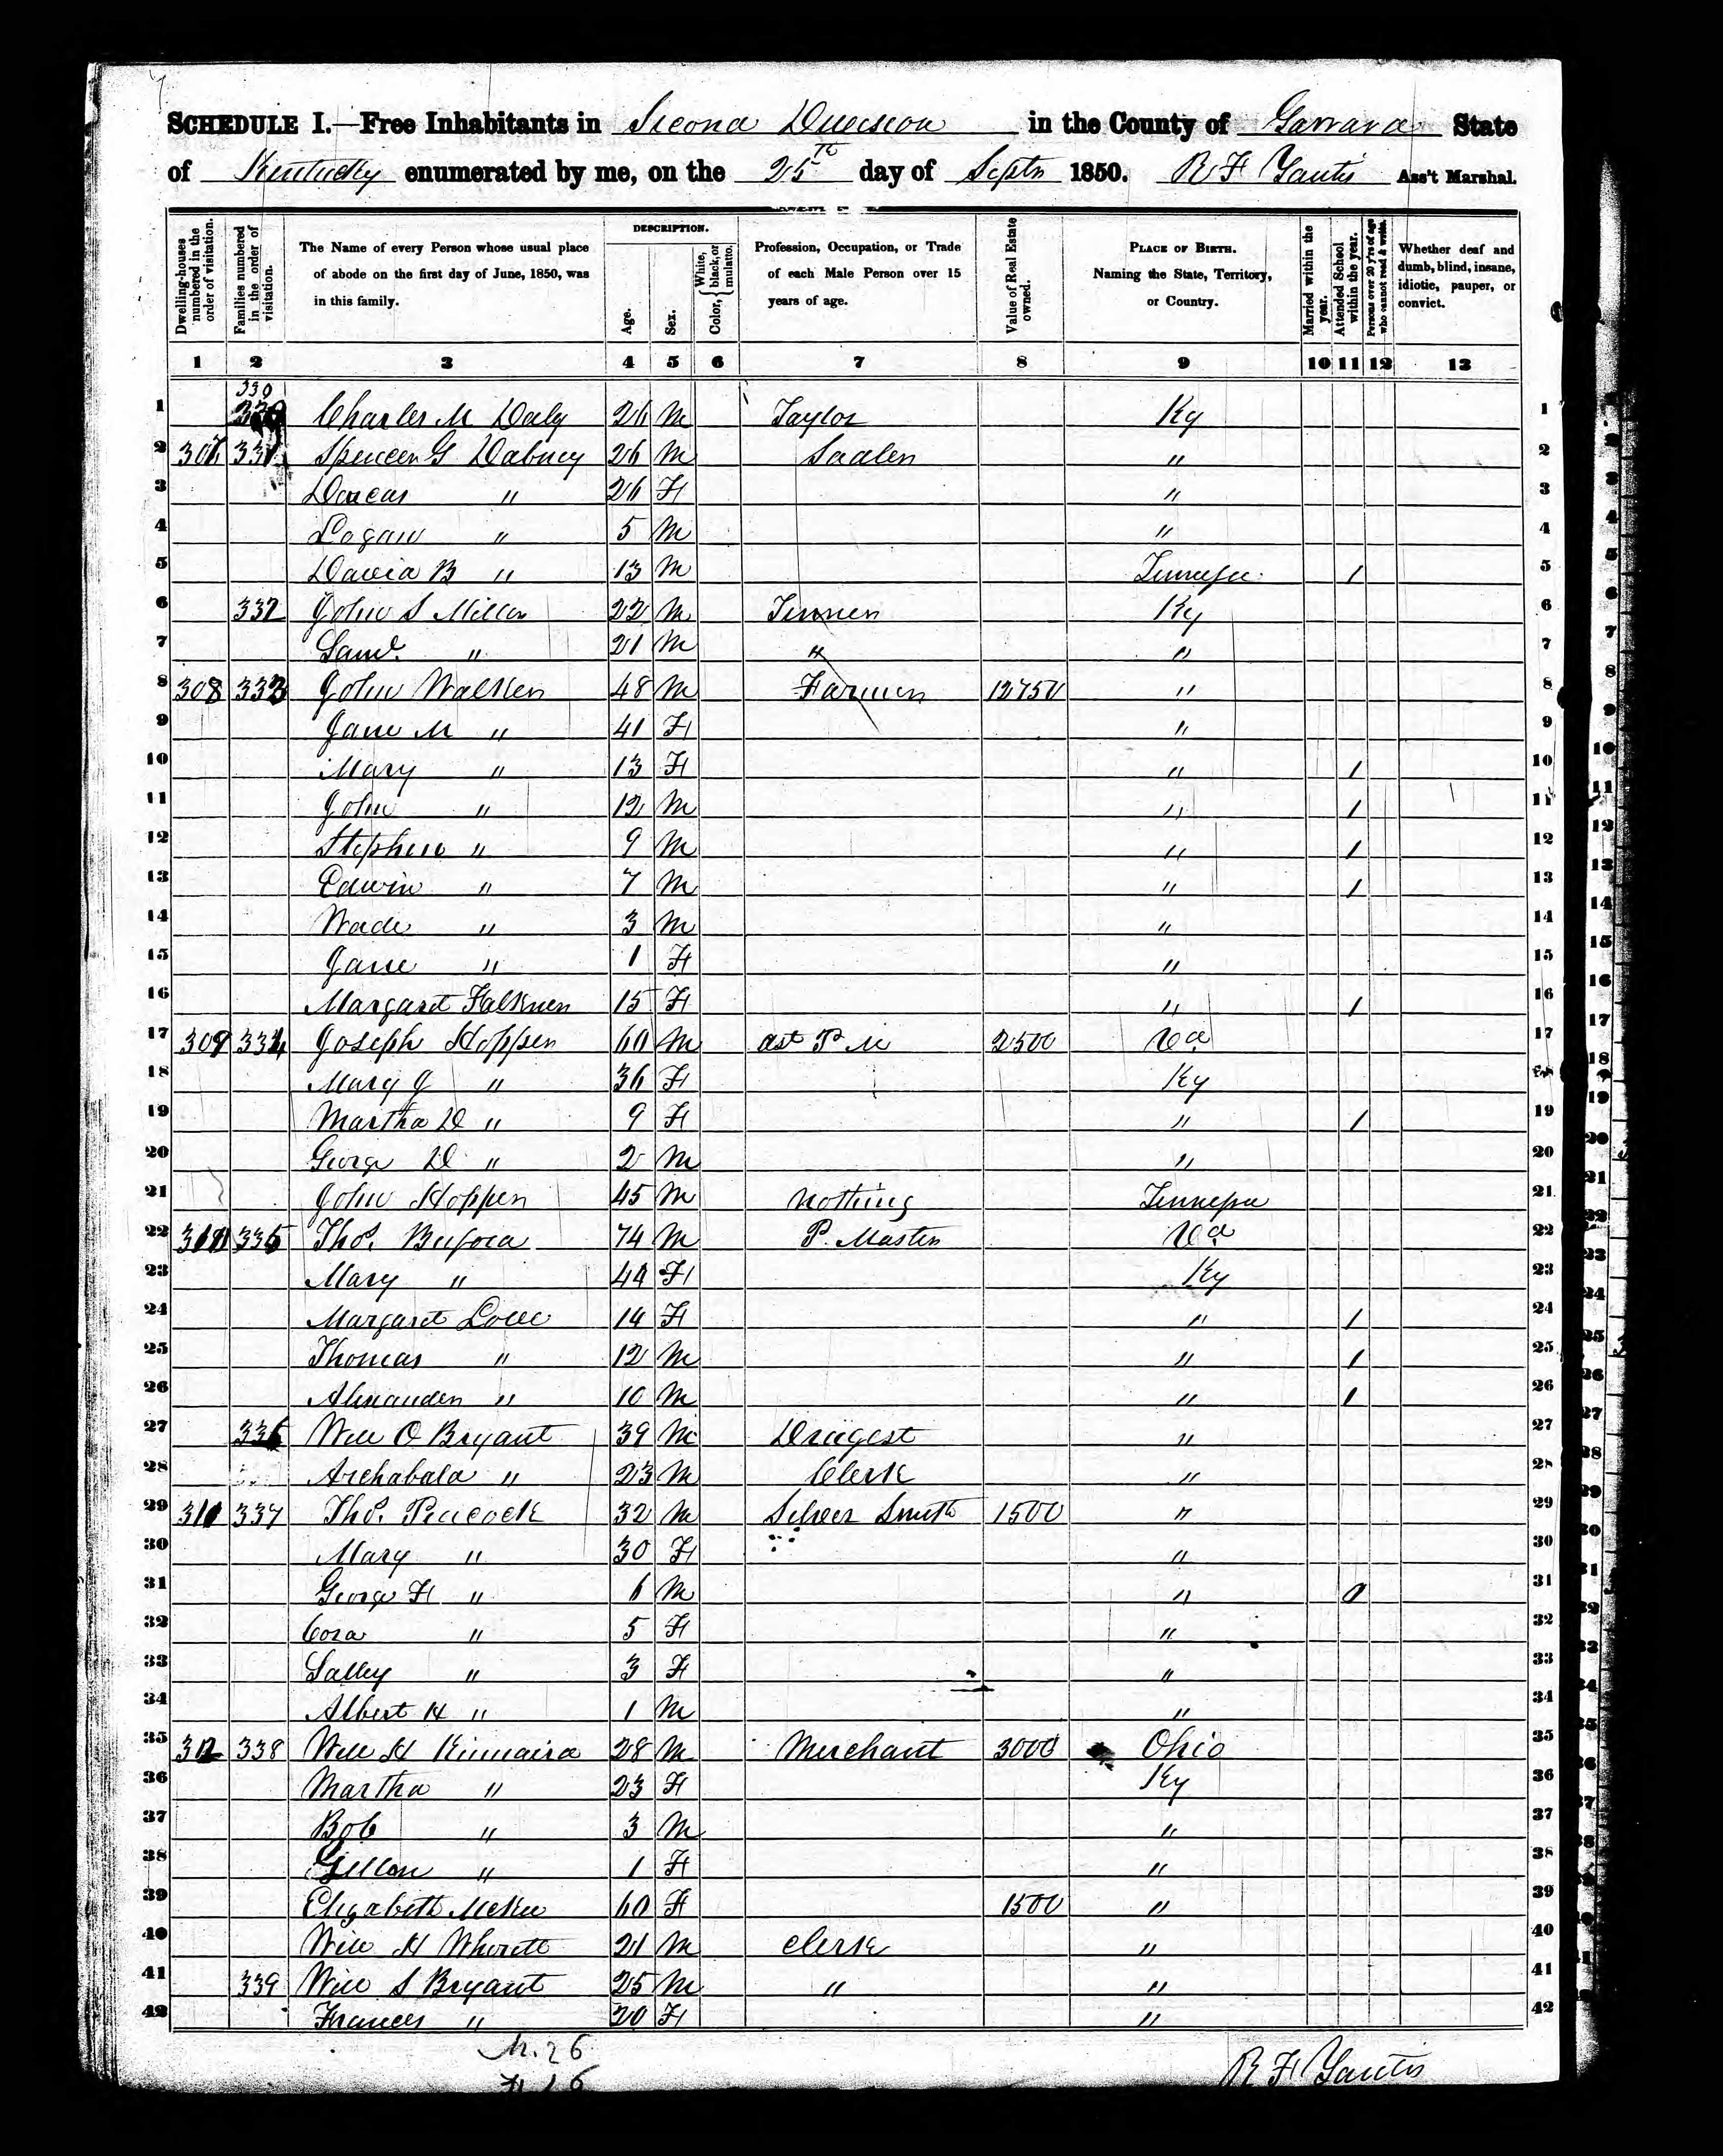 SCHEDULE I.—Free Inhabitants in Second Division in the County of Garrard State
of Kentucky enumerated by me, on the 25th day of Septr 1850. R F Yantis Ass't Marshal.
Dwelling-houses numbered in the order of visitation.
Families numbered in the order of visitation.
The Name of every Person whose usual place of abode on the first day of June, 1850, was in this family.
DESCRIPTION.
Age.
Sex.
Color, { White, black, or mulatto.
Profession, Occupation, or Trade of each Male Person over 15 years of age.
Value of Real Estate owned.
PLACE OF BIRTH. Naming the State, Territory, or Country.
Married within the year.
Attended School within the year.
Persons over 20 y'rs of age who cannot read & write.
Whether deaf and dumb, blind, insane, idiotic, pauper, or convict.
1 2 3 4 5 6 7 8 9 10 11 12 13
330
1 Charles M Daly 26 M Taylor Ky 1
2 307 331 Spencer G Dabney 26 M Sadler " 2
3 Dorcas " 26 F " 3
4 Logan " 5 M " 4
5 David B " 13 M Tennessee 1 5
6 332 John S Miller 22 M Tinner Ky 6
7 Saml. " 21 M " " 7
8 308 333 John Walker 48 M Farmer 12750 " 8
9 Jane M " 41 F " 9
10 Mary " 13 F " 1 10
11 John " 12 M " 1 11
12 Stephen " 9 M " 1 12
13 Edwin " 7 M " 1 13
14 Wade " 3 M " 14
15 Jane " 1 F " 15
16 Margaret Falkner 15 F " 1 16
17 309 334 Joseph Hopper 60 M ast P M 2500 Va 17
18 Mary J " 36 F Ky 18
19 Martha D " 9 F " 1 19
20 George D " 2 M " 20
21 John Hopper 45 M Nothing Tennessee 21
22 310 335 Thos. Buford 74 M P. Master Va 22
23 Mary " 44 F Ky 23
24 Margaret Love 14 F " 1 24
25 Thomas " 12 M " 1 25
26 Alexander " 10 M " 1 26
27 336 Will O Bryant 39 M Drugest " 27
28 Archabald " 23 M Clerk " 28
29 311 337 Thos. Peacock 32 M Silver Smith 1500 " 29
30 Mary " 30 F " 30
31 George F " 6 M " 1 31
32 Cora " 5 F " 32
33 Salley " 3 F " 33
34 Albert H " 1 M " 34
35 312 338 Will H Kinnaird 28 M Merchant 3000 Ohio 35
36 Martha " 23 F Ky 36
37 Bob " 3 M " 37
38 " 1 F " 38
39 Elizabeth McKee 60 F 1500 " 39
40 Will H 21 M Clerk " 40
41 339 Will S Bryant 25 M " " 41
42 Frances " 20 F " 42
M. 26
F 16
R F Yantis